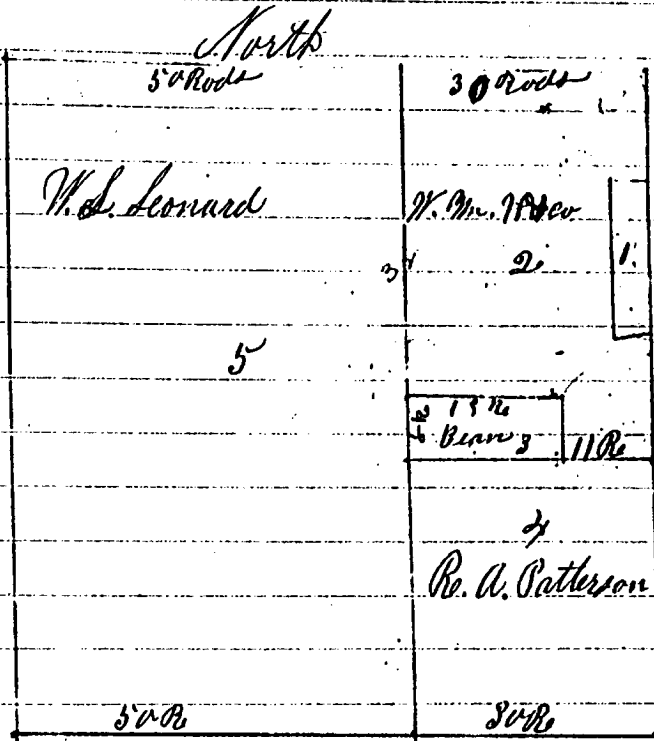 North
50 Rods 30 Rods
W. S. Leonard W. Wm.
2 1.
5
19 R
3 11 R
4
R. A. Patterson
50 R 30 R